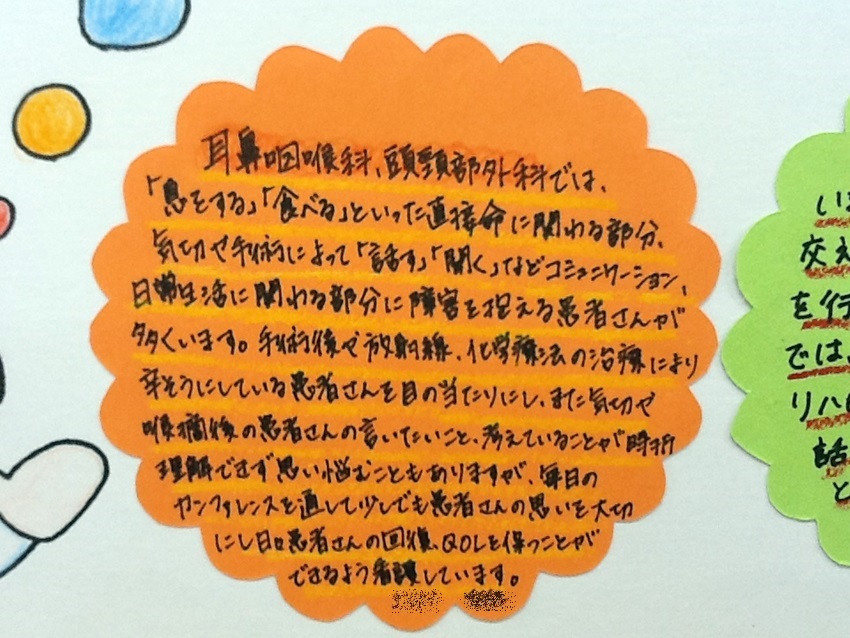 耳鼻咽喉科、頭頸部外科では、
「息をする」「食べる」といった直接命に関わる部分、
気切や手術によって「話す」「聞く」などコミュニケーション、
日常生活に関わる部分に障害を抱える患者さんが
多くいます。手術後や放射線、化学療法の治療により
辛そうにしている患者さんを目の当たりにし、また気切や
喉摘後の患者さんの言いたいこと、考えていることが時折
理解できず思い悩むこともありますが、毎日の
カンファレンスを通して少しでも患者さんの思いを大切
にし日々患者さんの回復、QOLを保つことが
できるよう看護しています。
交え
を行
では、
リハ
話
と